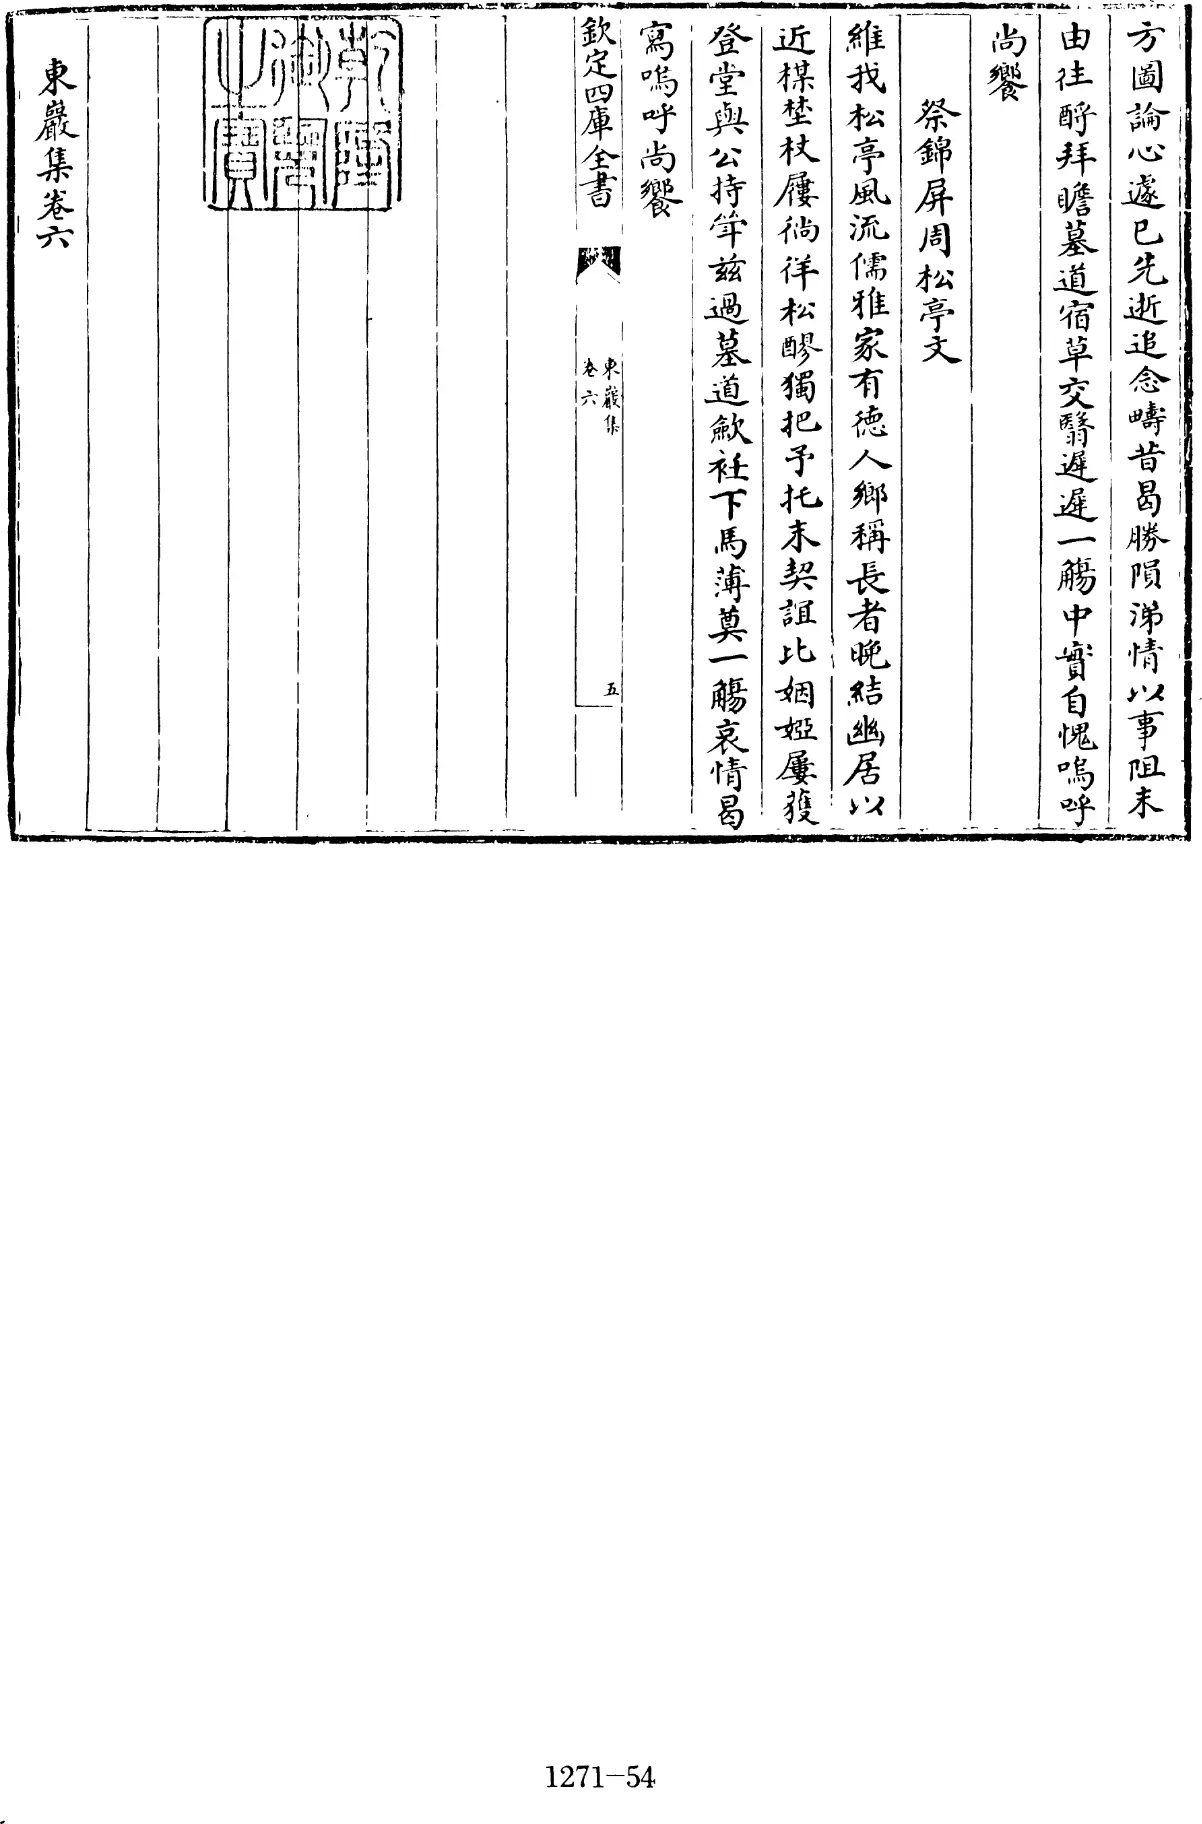 方圖論心遽已先逝追念疇昔曷勝隕涕情以事阻末
由往酹拜瞻墓道宿草交翳遲遲一觴中實自愧嗚呼
尚饗
祭錦屏周松亭文
維我松亭風流儒雅家有德人鄉稱長者晚結幽居以
近楳埜杖屨徜徉松醪獨把予托末契誼比姻婭屢獲
登堂與公持斝茲過墓道歛衽下馬薄奠一觴哀情曷
寫嗚呼尚饗
欽定四庫全書
東巖集
卷六
五
乾隆
御覽
之寶
東巖集卷六
1271-54